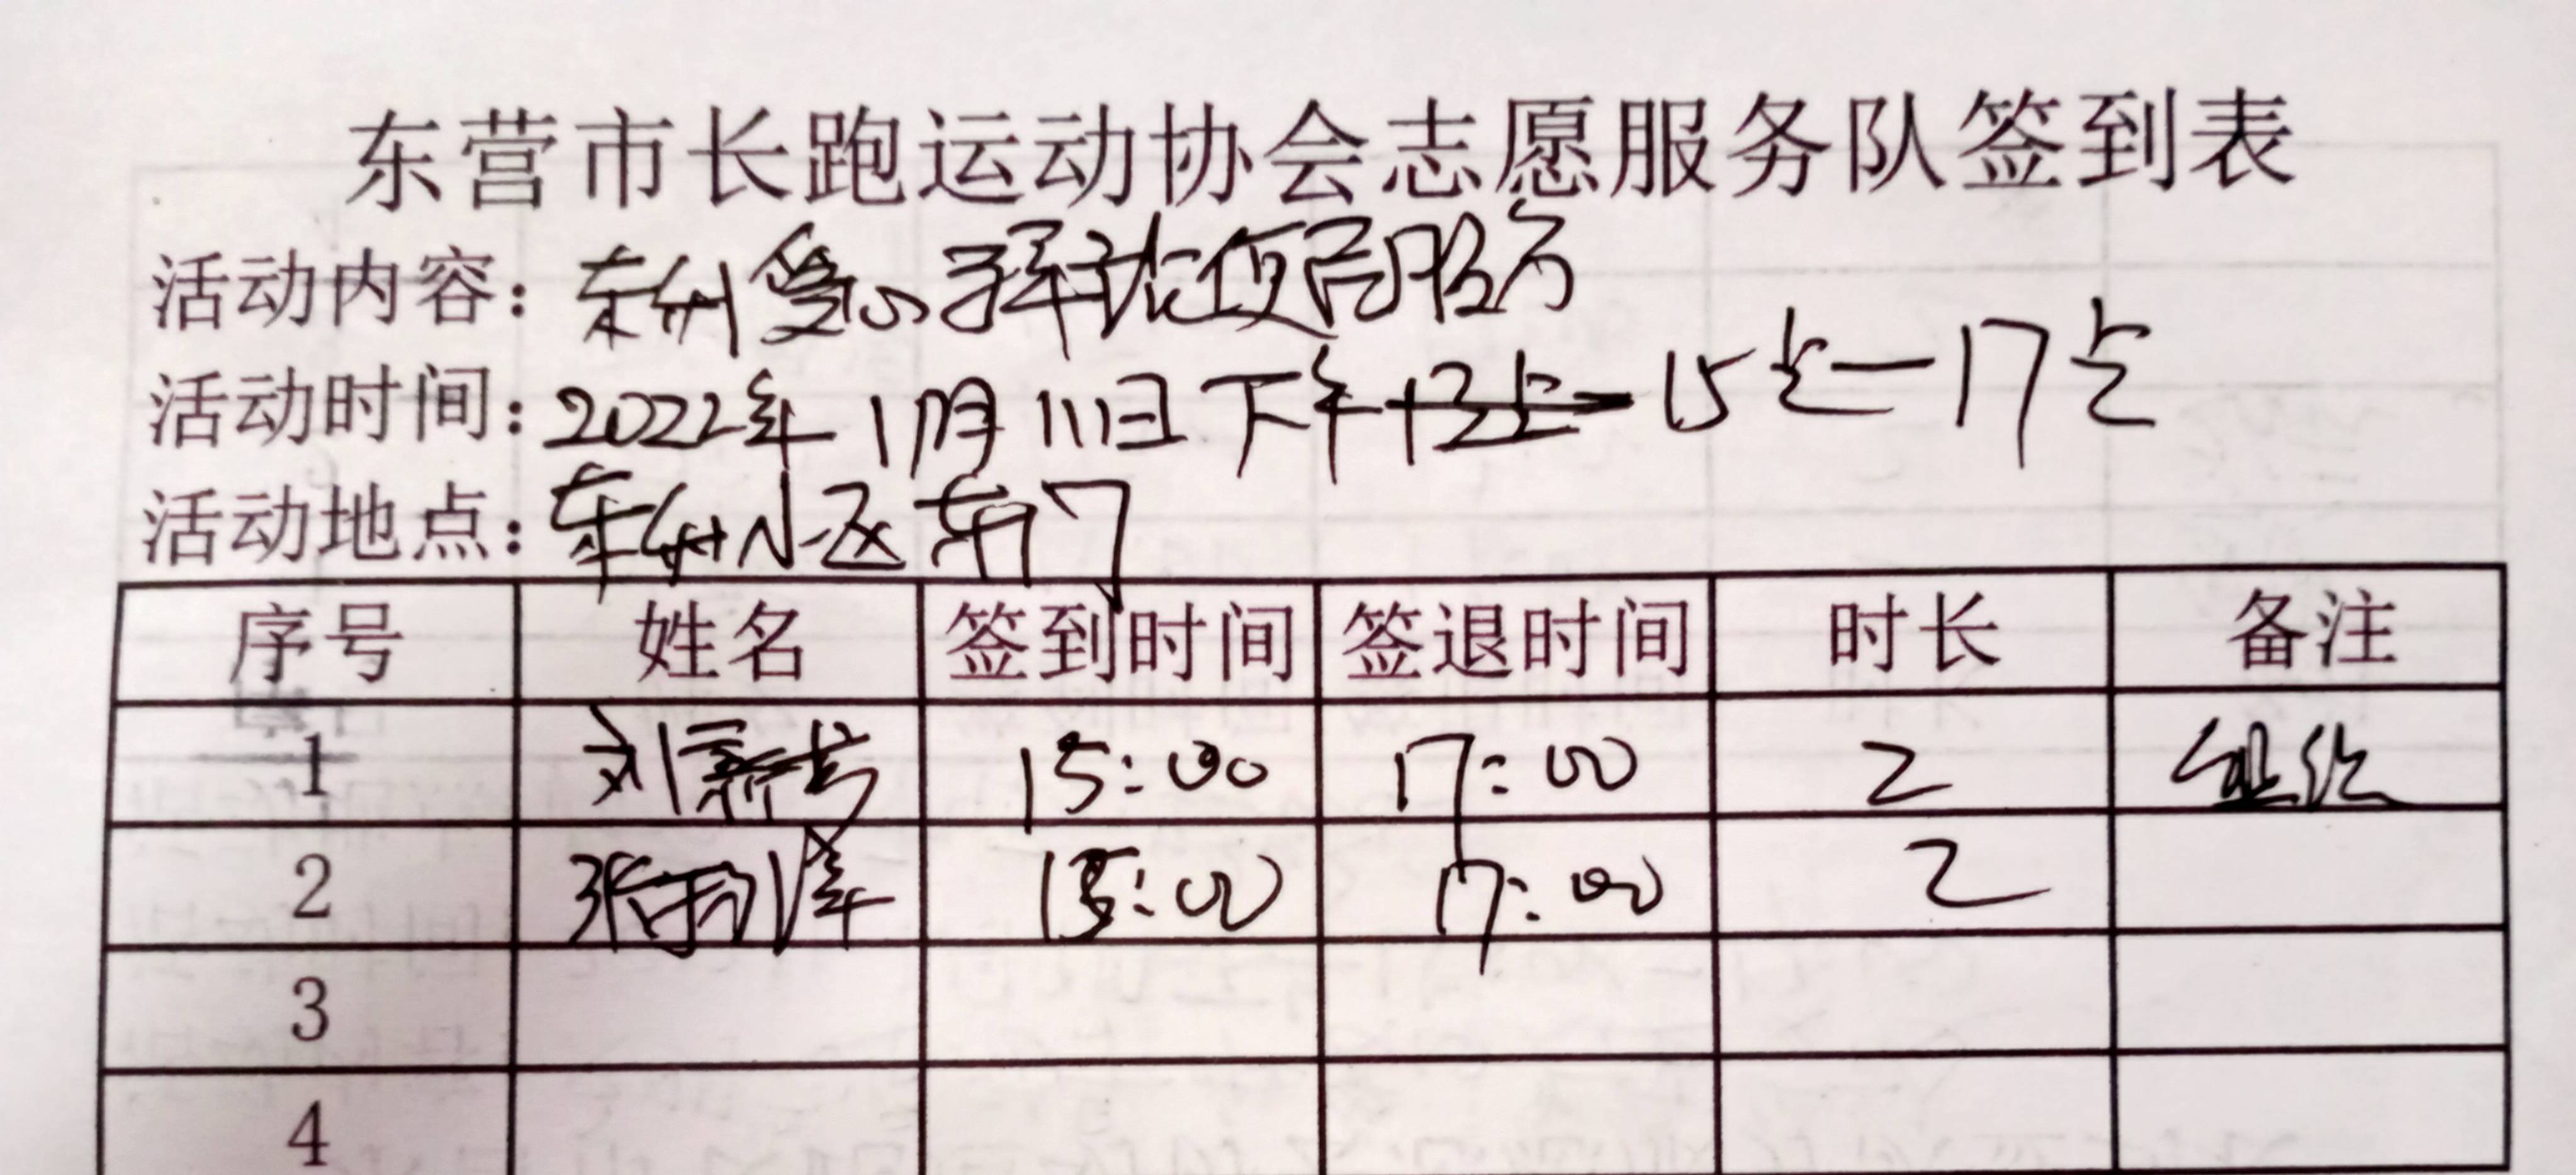 东营市长跑运动协会志愿服务队签到表
活动内容：东州爱心理发便民服务
活动时间：2022年1月11日下午 15点—17点
活动地点：东州小区东门
序号 姓名 签到时间 签退时间 时长 备注
1 刘 15:00 17:00 2 组织
2 张 15:00 17:00 2
3
4